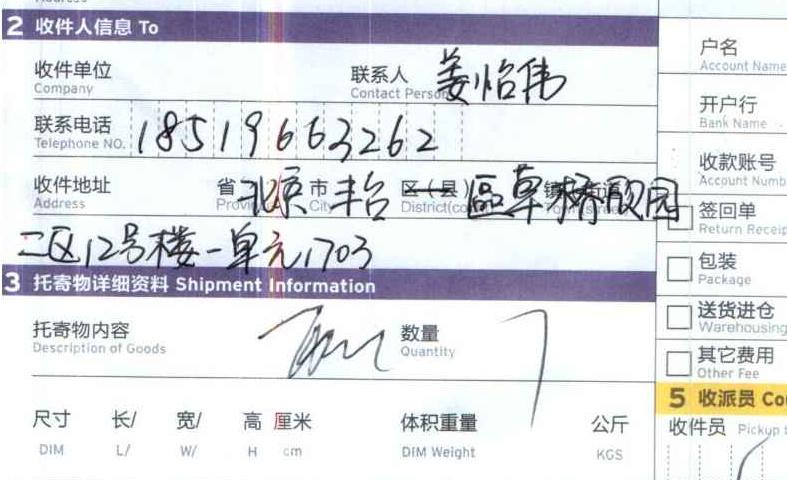 2 收件人信息 To
收件单位
Company
联系人 姜怡伟
Contact Person
联系电话 18519663262
Telephone NO.
收件地址 省 北京 市 丰台 区(县) 區草桥欣园
Address Province City District(co
二区12号楼一单元1703
3 托寄物详细资料 Shipment Information
托寄物内容
Description of Goods
数量
Quantity
尺寸 长/ 宽/ 高 厘米 体积重量 公斤
DIM L/ W/ H cm DIM Weight KGS
户名
Account Name
开户行
Bank Name
收款账号
Account Numb
签回单
Return Receip
包装
Package
送货进仓
Warehousing
其它费用
Other Fee
5 收派员 Cou
收件员 Pickup